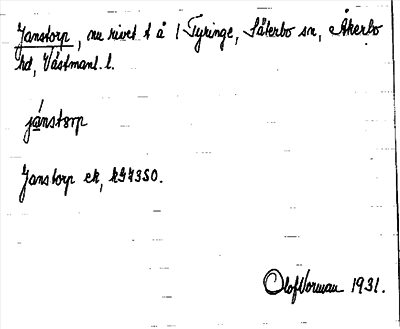 Janstorp, nu rivet t å 1 Tyringe, Säterbo sn, Åkerbo
hd, Västmanl. l.
jánstorp
Janstorp ek, kG7350.
Olof Vorman 1931.